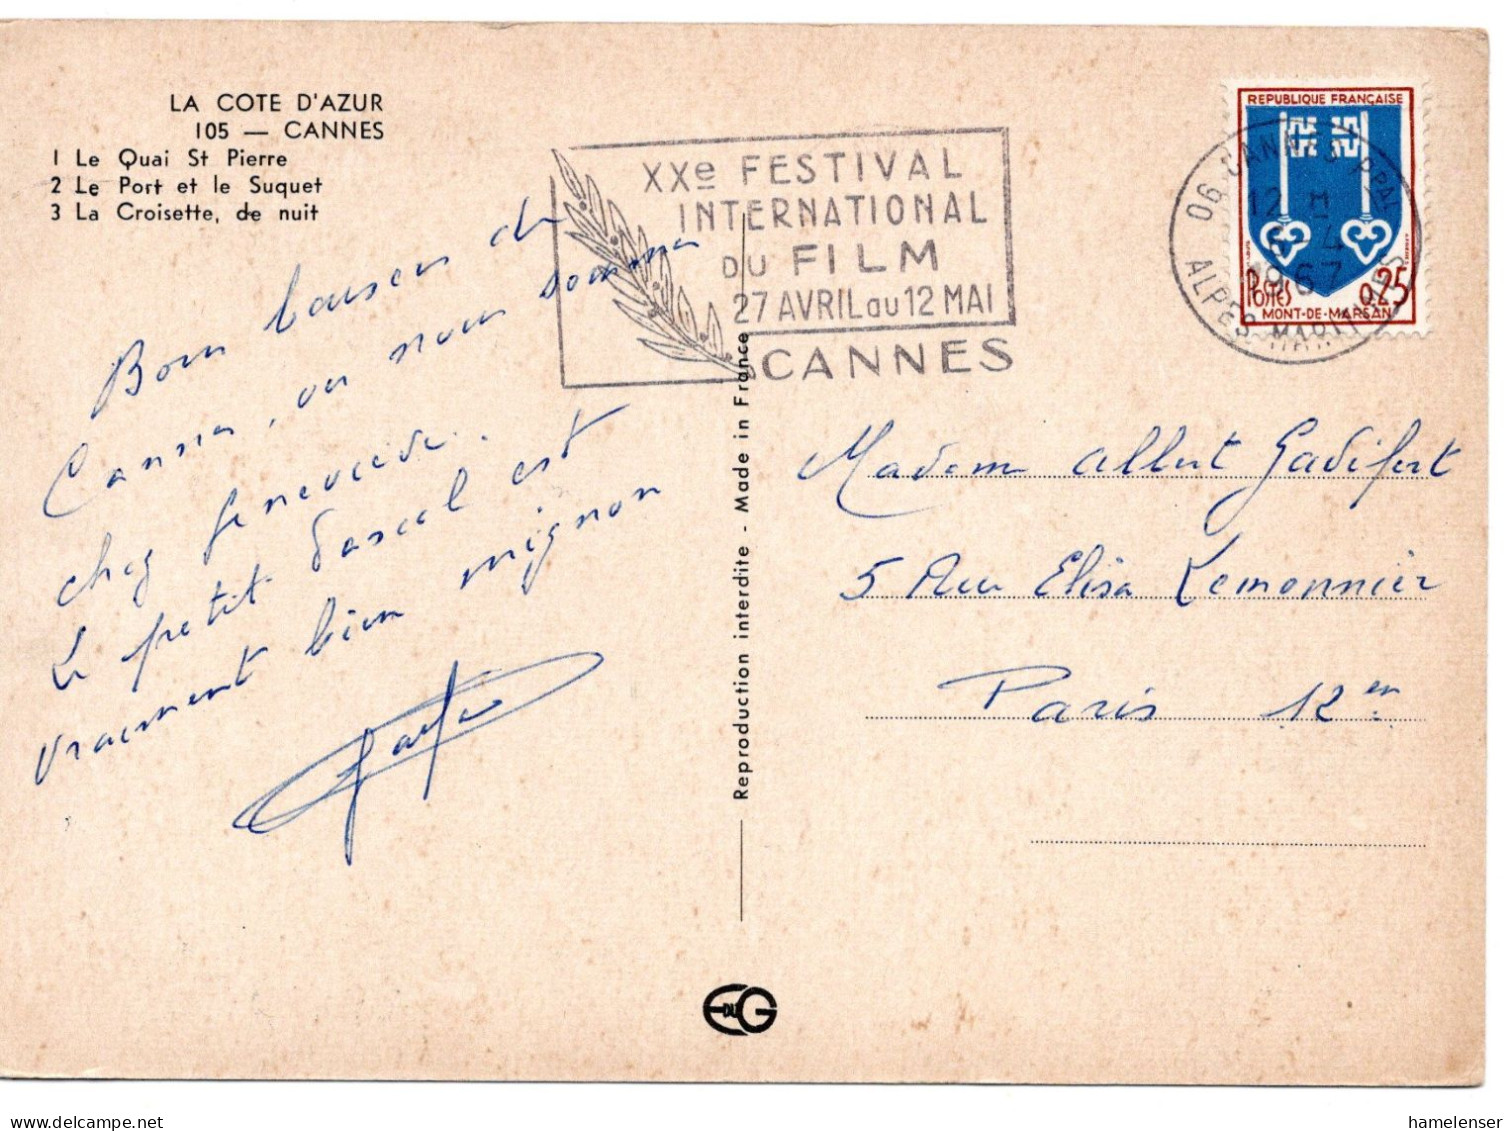 LA COTE D'AZUR
105 — CANNES
1 Le Quai St Pierre
2 Le Port et le Suquet
3 La Croisette, de nuit
Bons baisers de
Cannes, où nous sommes
chez Geneviève.
Le petit Pascal est
vraiment bien mignon
XXe FESTIVAL
INTERNATIONAL
DU FILM
27 AVRIL au 12 MAI
CANNES
REPUBLIQUE FRANÇAISE
POSTES 0,25
MONT-DE-MARSAN
06 CANNES PPAL
12 H
4
1967
ALPES MARITIMES
Madame Albert Gadifert
5 Rue Elisa Lemonnier
Paris 12 em
Reproduction interdite - Made in France
E DU G
hamelenser